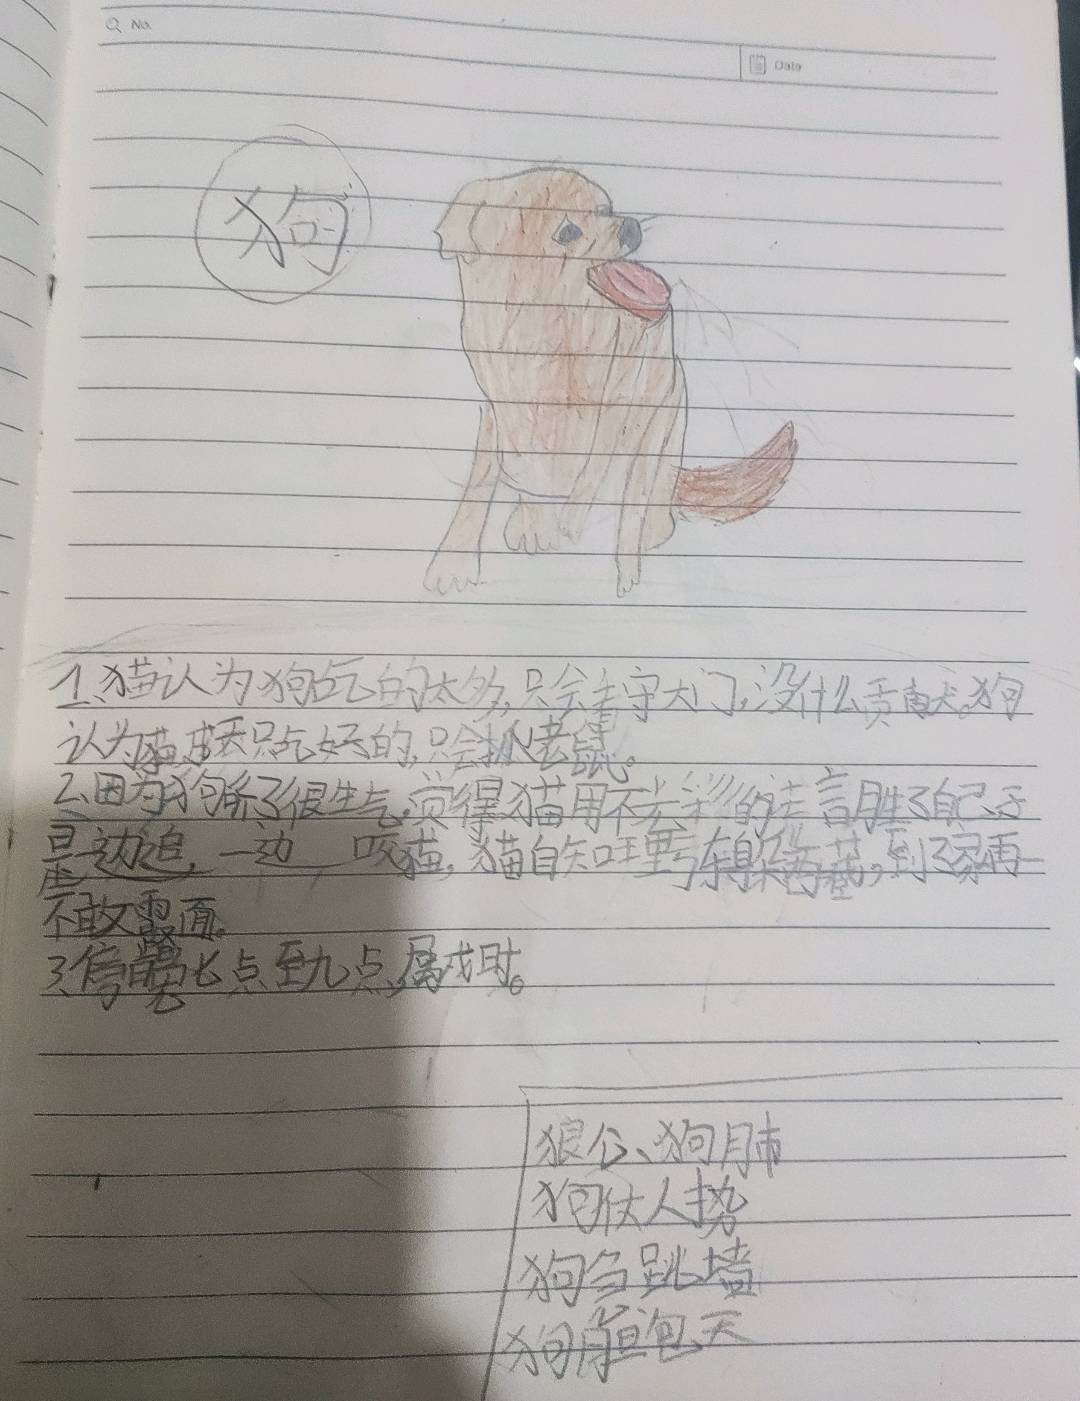 No.
Date
狗
1、猫认为狗吃的太多,只会看守大门,没什么贡献。狗
认为猫成天只吃好的,只会抓老鼠。
2、因为狗听了很生气,觉得猫用不光彩的言胜了自己于
是边追,一边 咬猫,猫自知理亏东躲西藏,到了家再
不敢露面。
3、傍晚七点至九点,属戌时。
狼心、狗肺
狗仗人势
狗急跳墙
狗胆包天